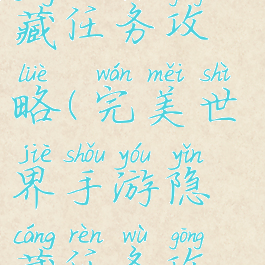 藏任务攻
lüè wán měi shì
略(完美世
jiè shǒu yóu yǐn
界手游隐
cáng rèn wù gōng
藏任务攻